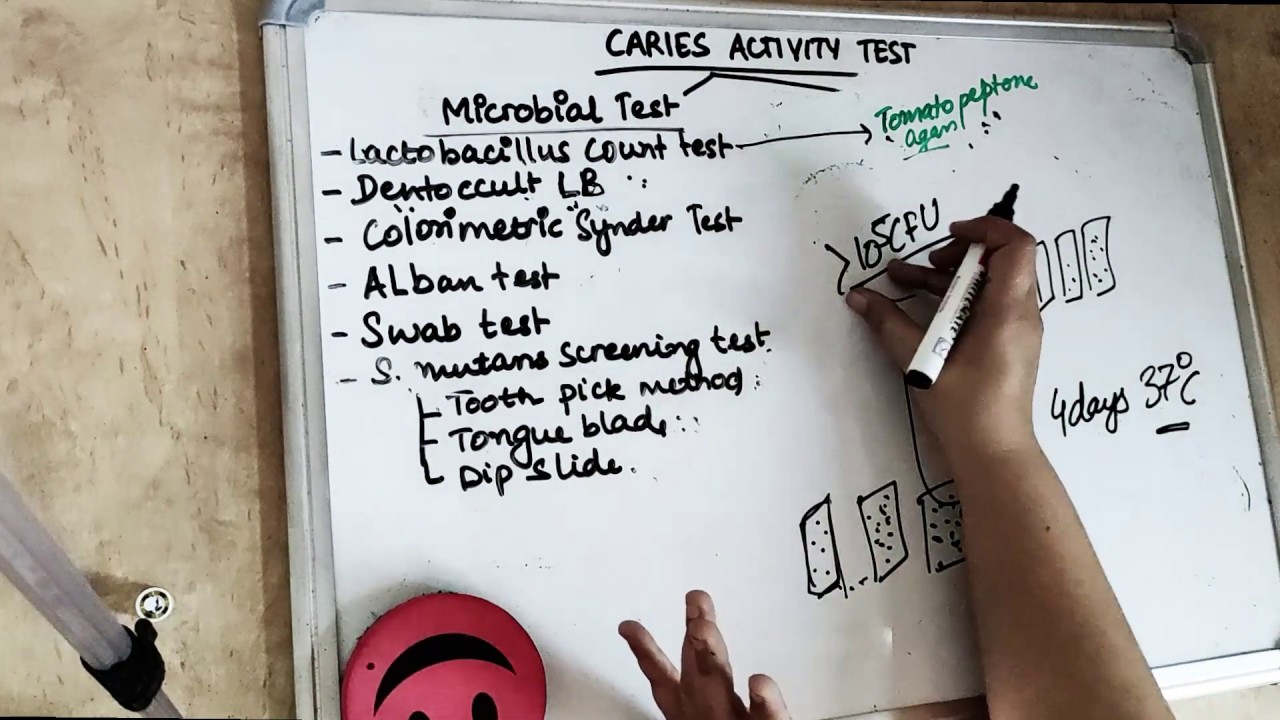 CARIES ACTIVITY TEST
Microbial Test
- Lactobacillus Count test
Tomato peptone
agar
- Dentoccult LB
- Colorimetric "Synder Test
- ALban test
- Swab test
- S. mutans screening test
Tooth pick method
Tongue blade
Dip slide.
>10⁵CFU
4days 37°C